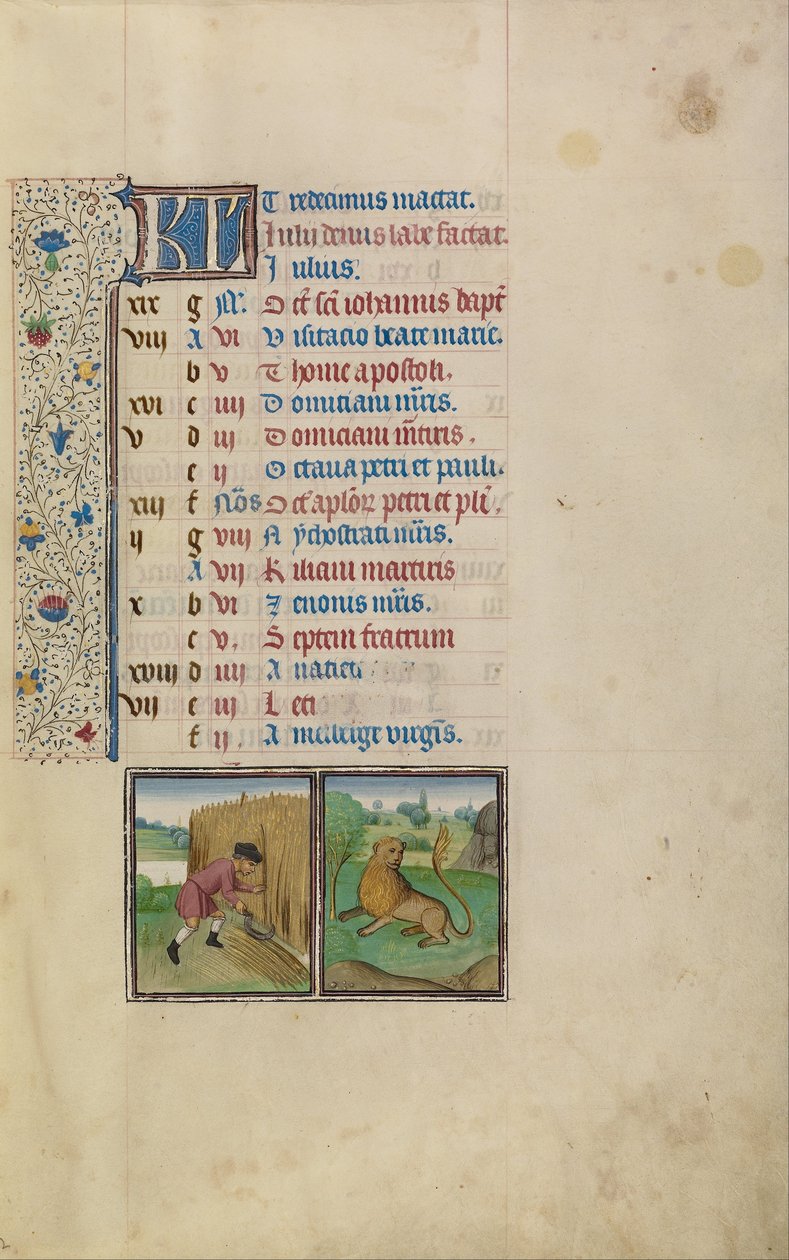 KL Tredecimus mactat.
Iulij denus labe factat.
Julius.
xix g N. Oct sci iohannis bapt
viii A vi Visitacio beate marie.
b v Thome apostoli.
xvi c iiii Domiciani mris.
v d iii Domiciani mtiris.
e ii Octaua petri et pauli.
xiii f Nōs Oct aplor petri et pli.
ii g viii Nychostrati mris.
A vii Kiliani martiris
x b vi Zenonis mris.
c v. Septem fratrum
xviii d iiii
vii e iii Leti
f ii. Amelberge virgis.